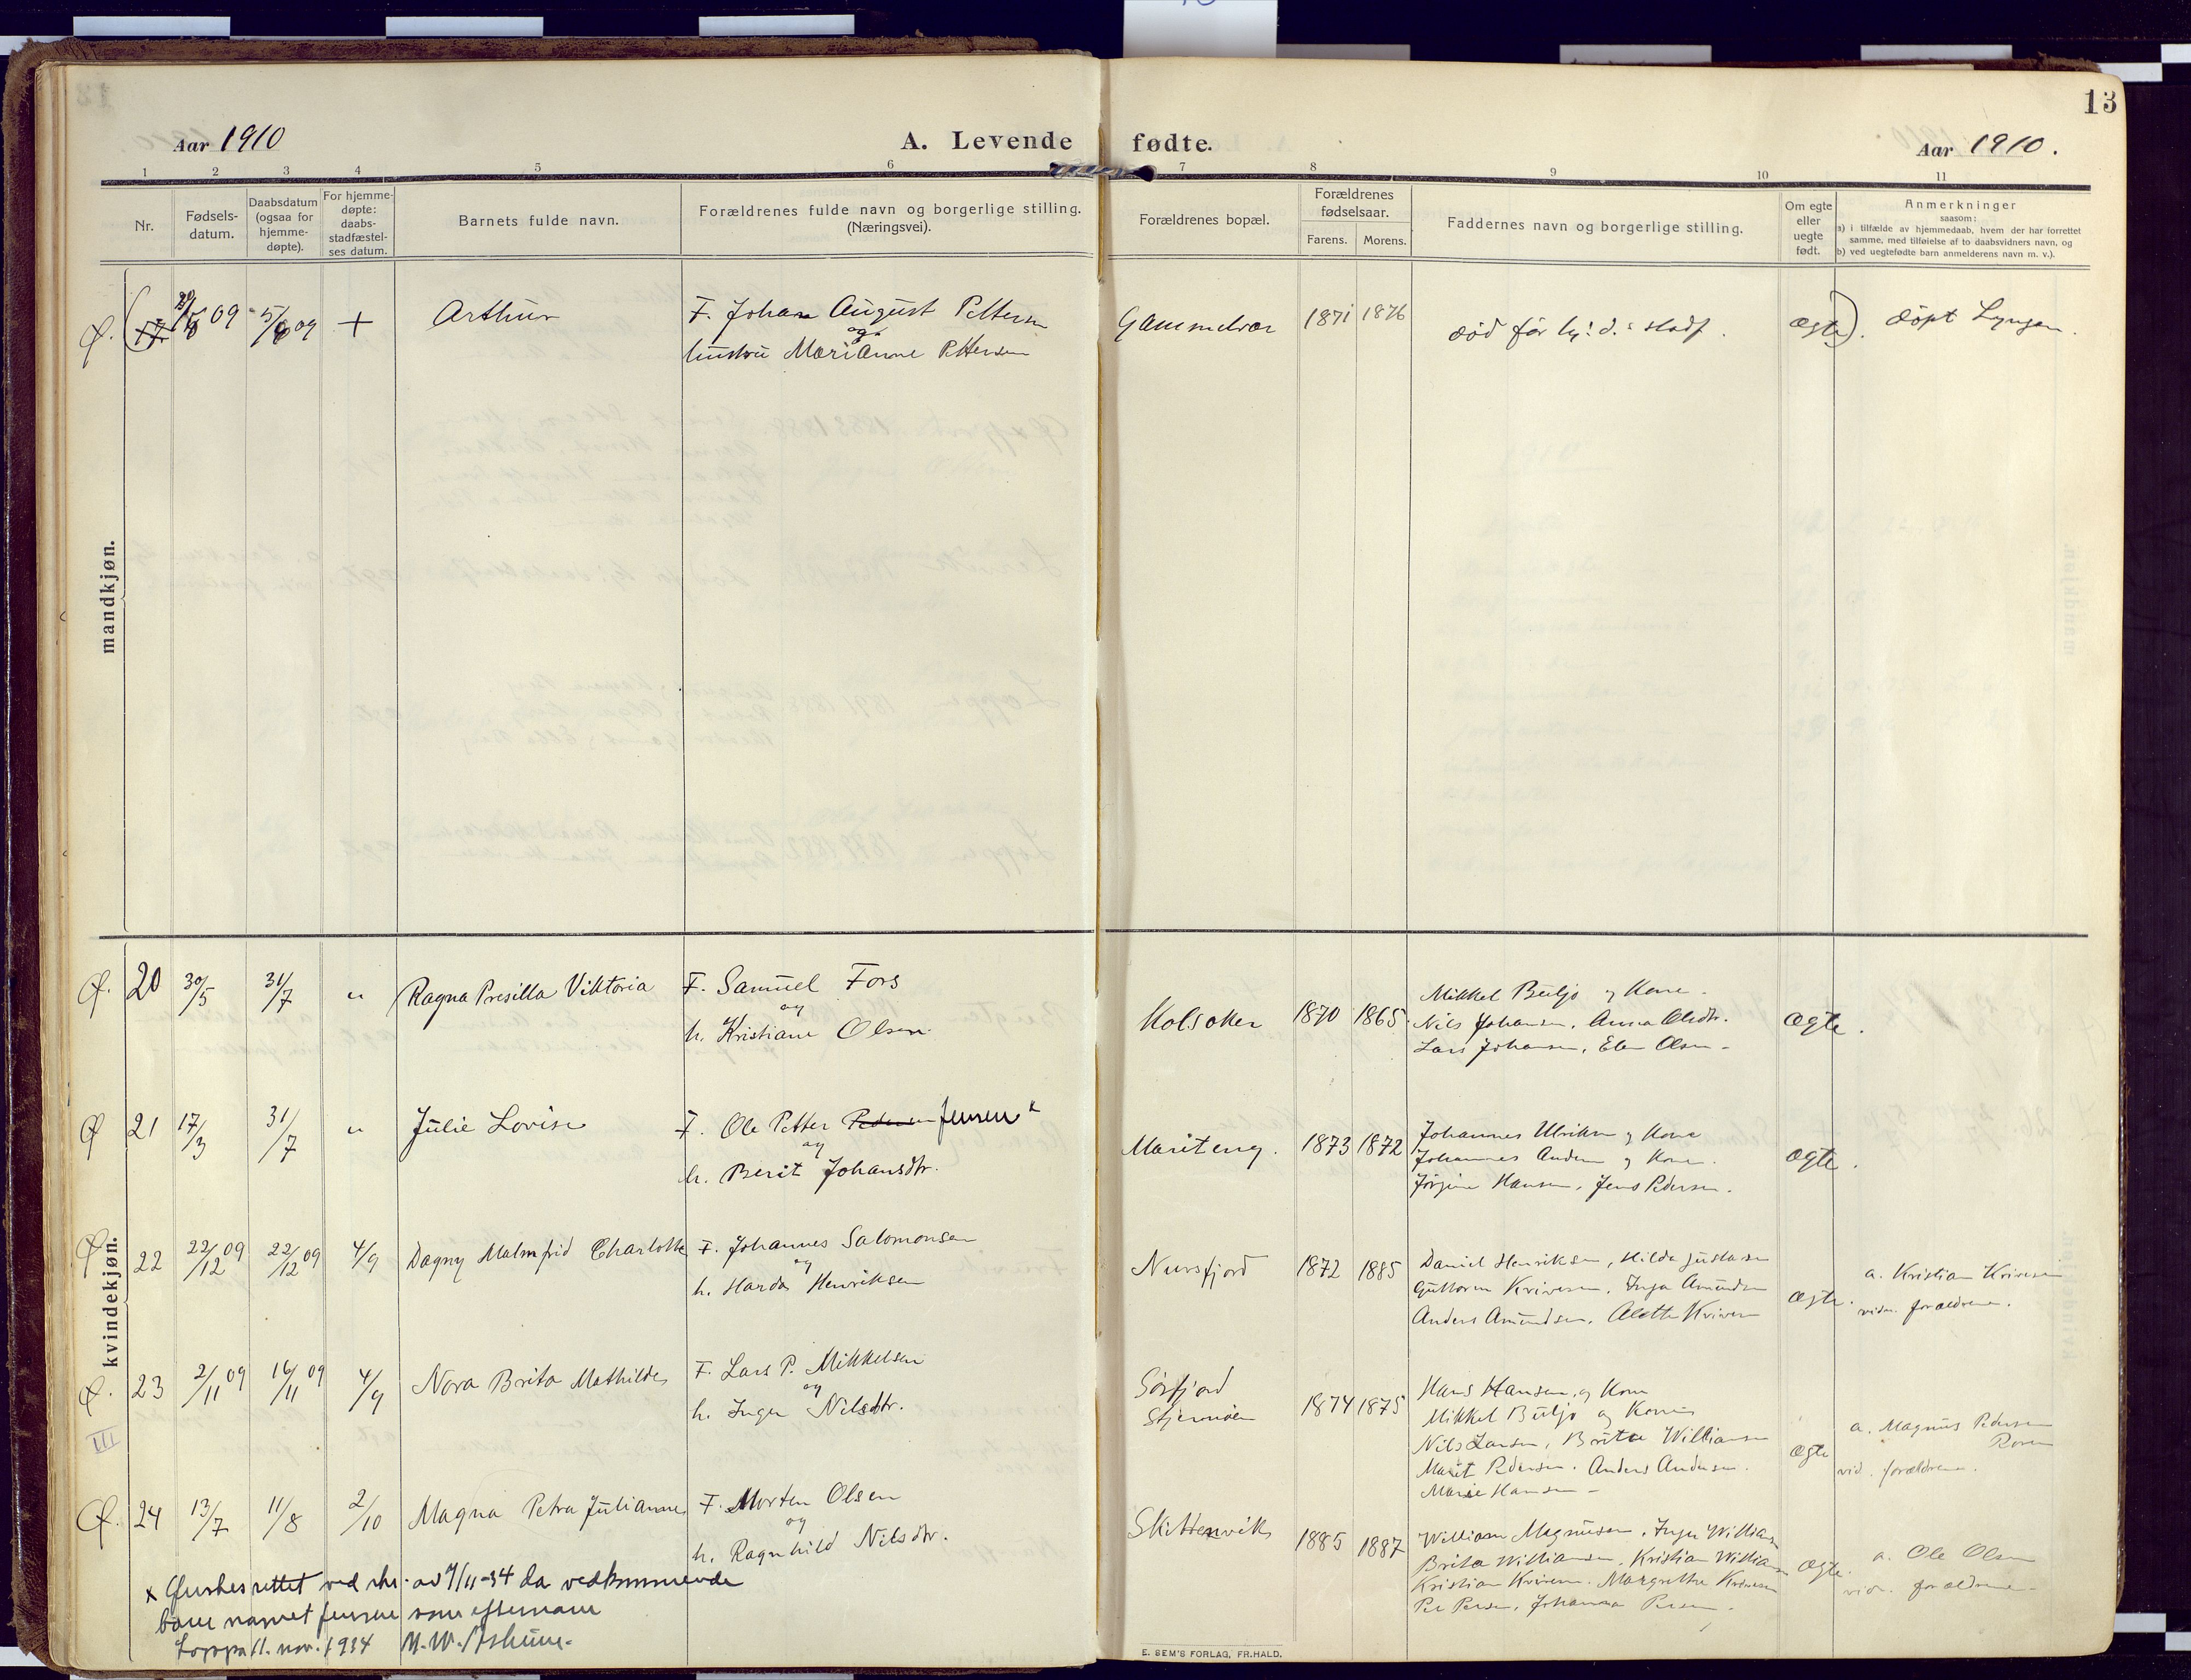 13
Aar 1910
A. Levende fødte.
Aar 1910.
1 2 3 4 5 6 7 8 9 10 11
Nr.
Fødsels-
datum.
Daabsdatum
(ogsaa for
hjemme-
døpte).
For hjemme-
døpte:
daabs-
stadfæstel-
ses datum.
Barnets fulde navn.
Forældrenes fulde navn og borgerlige stilling.
(Næringsvei).
Forældrenes bopæl.
Forældrenes
fødselsaar.
Farens. Morens.
Faddernes navn og borgerlige stilling.
Om egte
eller
uegte
født.
Anmerkninger
saasom:
a) i tilfælde av hjemmedaab, hvem der har forrettet
samme, med tilføielse af to daabsvidners navn, og
b) ved uegtefødte barn anmelderens navn m. v.).
mandkjøn.
Arthur
F. Johan August Pettersen
og
hustru Marianne Pettersen
Gammelvær
1871 1876
død før hj: d. : stadf.
ægte).
døpt Lyngen.
kvindekjøn.
Ø. 20 30/5 31/7 " Ragna Presilla Viktoria
F. Samuel Fors
og
h. Kristiane Olsen
Kolsoker 1870 1865
Mikkel Buljo og Kone.
Nils Johansen, Anna Olsdtr.
Lars Johansen, Elen Olsen.
ægte.
Ø 21 17/3 31/7 " Julie Lovise
F. Ole Petter Pedersen Jensen x
og
h. Berit Johansdtr.
Mariteng. 1873 1872
Johannes Ulriksen og Kone
Johannes Andersen og Kone.
Jørgine Hansen, Jens Pedersen.
ægte.
Ø 22 22/12 09 22/12 09 4/9 Dagny Malmfrid Charlotte
F. Johannes Salomonsen
og
h. Harda Henriksen
Nuvsfjord 1872 1885
Daniel Henriksen, Hilda Gustavsen
Guttorm Kriversen, Inga Amundsen
Anders Amundsen, Alette Kriversen
ægte.
a. Kristian Kriversen
vidn. forældrene.
Ø. 23 2/11 09 16/11 09 4/9 Nora Brita Mathilde
F. Lars P. Mikkelsen
og
h. Inger Nilsdtr.
Sørfjord
Stjernøen
1874 1875
Hans Hansen og Kone
Mikkel Buljo og Kone
Nils Larsen, Brita Williamsen
Marit Pedersen. Anders Andersen.
Marie Hansen
ægte
a. Magnus Pedersen
vid. forældrene.
III
Ø. 24 13/7 11/8 2/10 Magna Petra Julianne
F. Morten Olsen
og
h. Ragnhild Nilsdtr.
Skittenvik 1885 1887
William Magnussen, Inger Williamsen
Brita Williamsen, Kristian Williamsen
Kristian Kriversen. Margrethe Kriversen
Per Persen, Johanna Persen.
ægte.
a. Ole Olsen
vidn. forældrene.
x rettet ved skr. av 7/11-34 da vedkommende
bare navnet Jensen som efternavn
Loppa 11. nov. 1934
E. SEM'S FORLAG, FR.HALD.